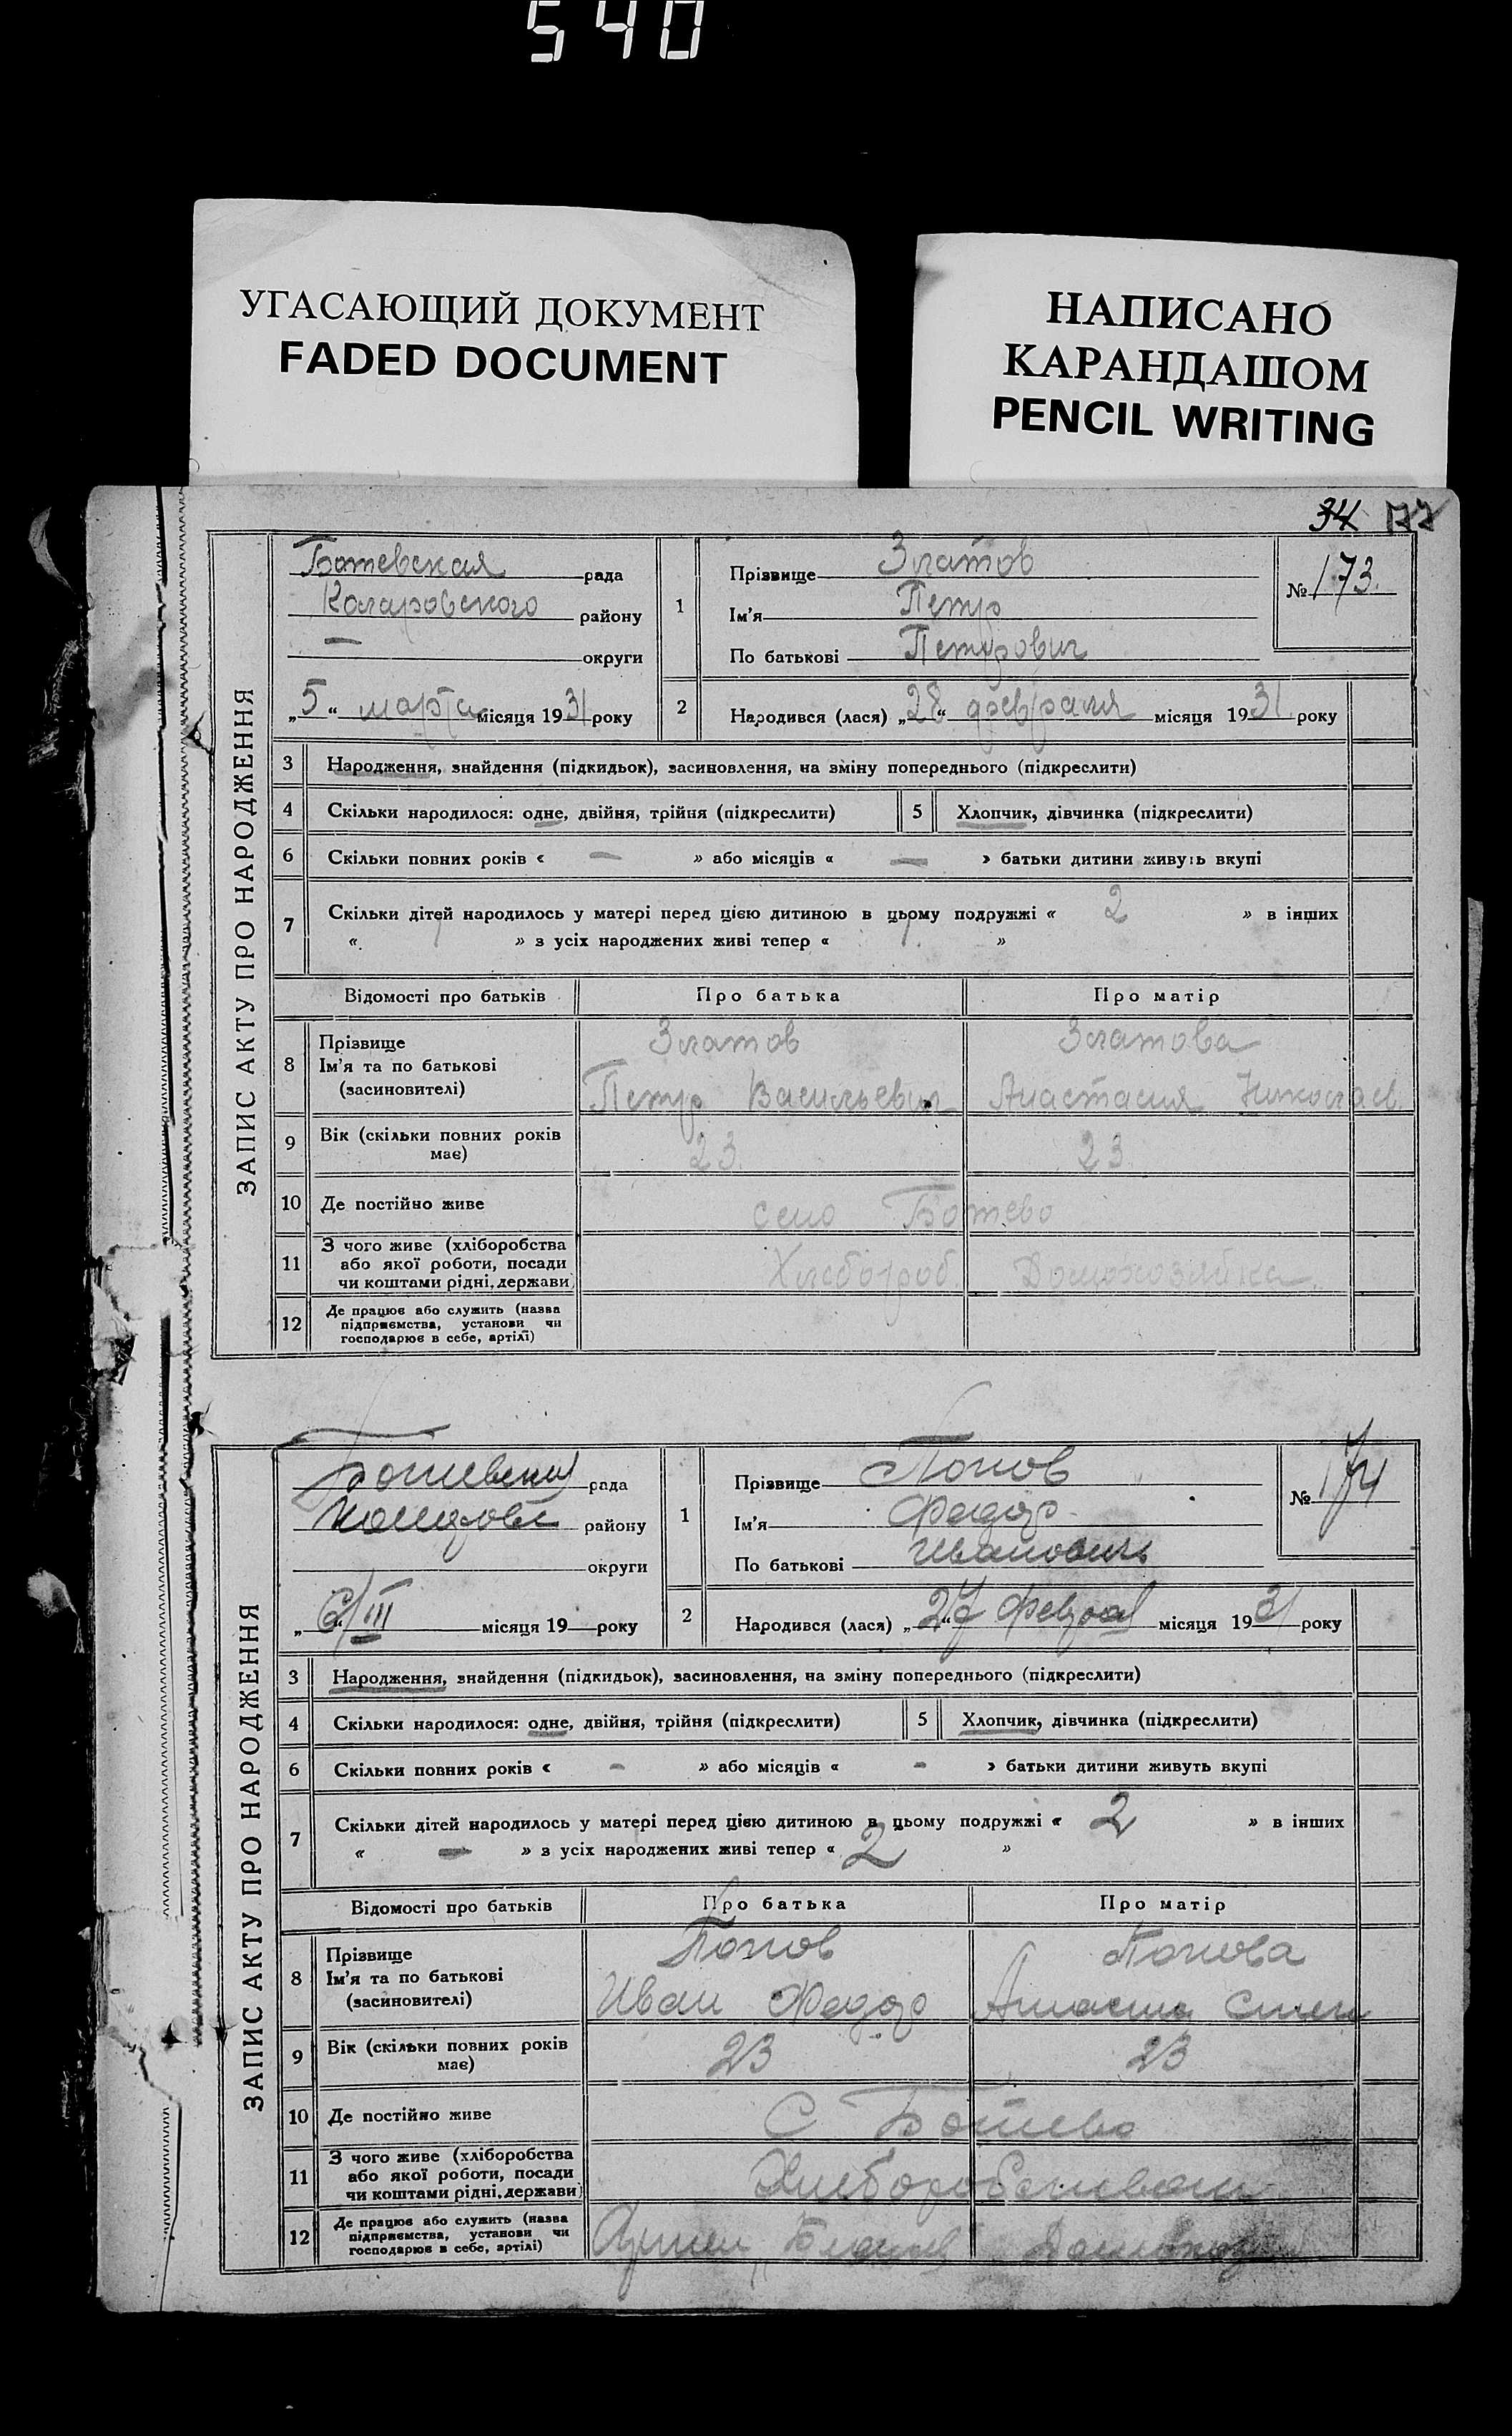 540
УГАСАЮЩИЙ ДОКУМЕНТ
FADED DOCUMENT
НАПИСАНО
КАРАНДАШОМ
PENCIL WRITING
34 177
ЗАПИС АКТУ ПРО НАРОДЖЕННЯ
Ботевская рада
Коларовского району
— округи
„5“ марта місяця 1931 року
1 Прізвище Златов
Ім'я Петр
По батькові Петрович
№ 173.
2 Народився (лася) „28“ февраля місяця 1931 року
3 Народження, знайдення (підкидьок), засиновлення, на зміну попереднього (підкреслити)
4 Скільки народилося: одне, двійня, трійня (підкреслити) 5 Хлопчик, дівчинка (підкреслити)
6 Скільки повних років « — » або місяців « — » батьки дитини живуть вкупі
7 Скільки дітей народилось у матері перед цією дитиною в цьому подружжі « 2 » в інших
« » з усіх народжених живі тепер « »
Відомості про батьків Про батька Про матір
8 Прізвище Златов Златова
Ім'я та по батькові
(засиновителі) Петр Васильевич Анастасия Николаев.
9 Вік (скільки повних років
має) 23 23
10 Де постійно живе село Ботево
11 З чого живе (хліборобства
або якої роботи, посади Хлебороб. Домохозяйка.
чи коштами рідні, держави)
12 Де працює або служить (назва
підприємства, установи чи
господарює в себе, артілі)
ЗАПИС АКТУ ПРО НАРОДЖЕННЯ
Ботевская рада
району
округи
„6/III місяця 19 року
1 Прізвище Попов
Ім'я Федор
По батькові Иванович
№ 174
2 Народився (лася) „27“ Феврал місяця 1931 року
3 Народження, знайдення (підкидьок), засиновлення, на зміну попереднього (підкреслити)
4 Скільки народилося: одне, двійня, трійня (підкреслити) 5 Хлопчик, дівчинка (підкреслити)
6 Скільки повних років « - » або місяців « - » батьки дитини живуть вкупі
7 Скільки дітей народилось у матері перед цією дитиною в цьому подружжі « 2 » в інших
« — » з усіх народжених живі тепер « 2 »
Відомості про батьків Про батька Про матір
8 Прізвище Попов Попова
Ім'я та по батькові
(засиновителі) Иван Федор Степ
9 Вік (скільки повних років
має) 23 23
10 Де постійно живе С Ботево
11 З чого живе (хліборобства
або якої роботи, посади
чи коштами рідні, держави)
12 Де працює або служить (назва
підприємства, установи чи
господарює в себе, артілі)